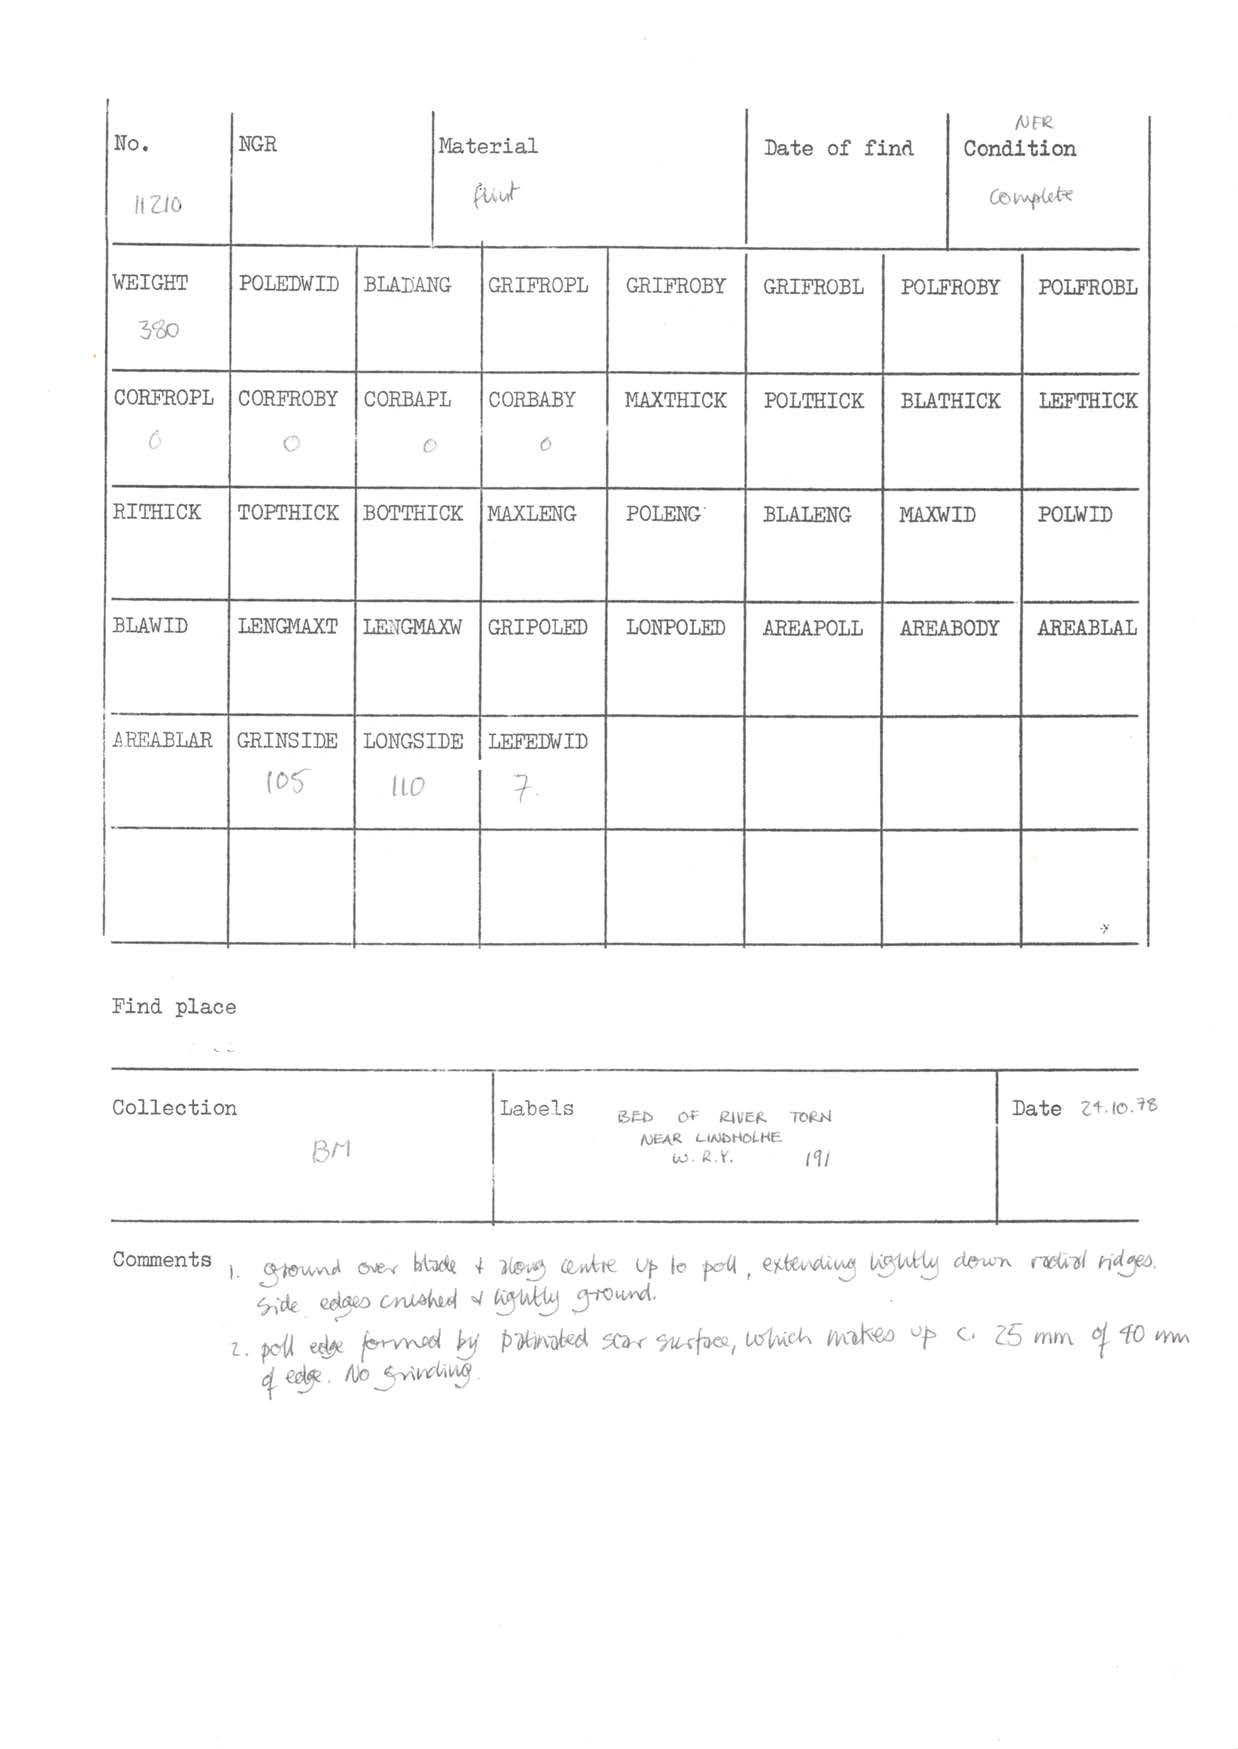 No. NGR Material Date of find NER Condition
11210 flint complete
WEIGHT POLEDWID BLADANG GRIFROPL GRIFROBY GRIFROBL POLFROBY POLFROBL
380
CORFROPL CORFROBY CORBAPL CORBABY MAXTHICK POLTHICK BLATHICK LEFTHICK
0 0 0 0
RITHICK TOPTHICK BOTTHICK MAXLENG POLENG BLALENG MAXWID POLWID
BLAWID LENGMAXT LENGMAXW GRIPOLED LONPOLED AREAPOLL AREABODY AREABLAL
AREABLAR GRINSIDE LONGSIDE LEFEDWID
105 110 7.
Find place
Collection Labels BED OF RIVER TORN Date 24.10.78
NEAR LINDHOLME
BM W.R.Y. 191
Comments 1. ground over blade & along centre up to poll, extending lightly down radial ridges.
Side edges crushed & lightly ground.
2. poll edge formed by patinated scar surface, which makes up c. 25 mm of 40 mm
of edge. No grinding.